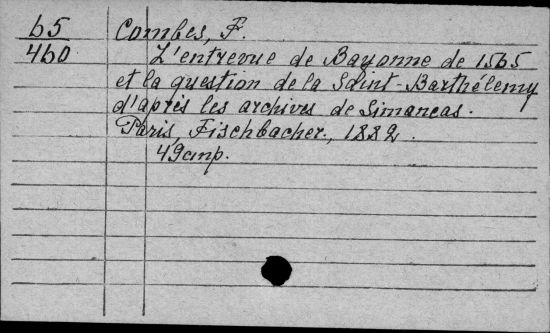 65 Combes, F.
460 L'entrevue de Bayonne de 1565
et la question de la Saint-Barthélemy
d'après les archives de Simancas.
Paris, Fischbacher, 1882.
49 p.